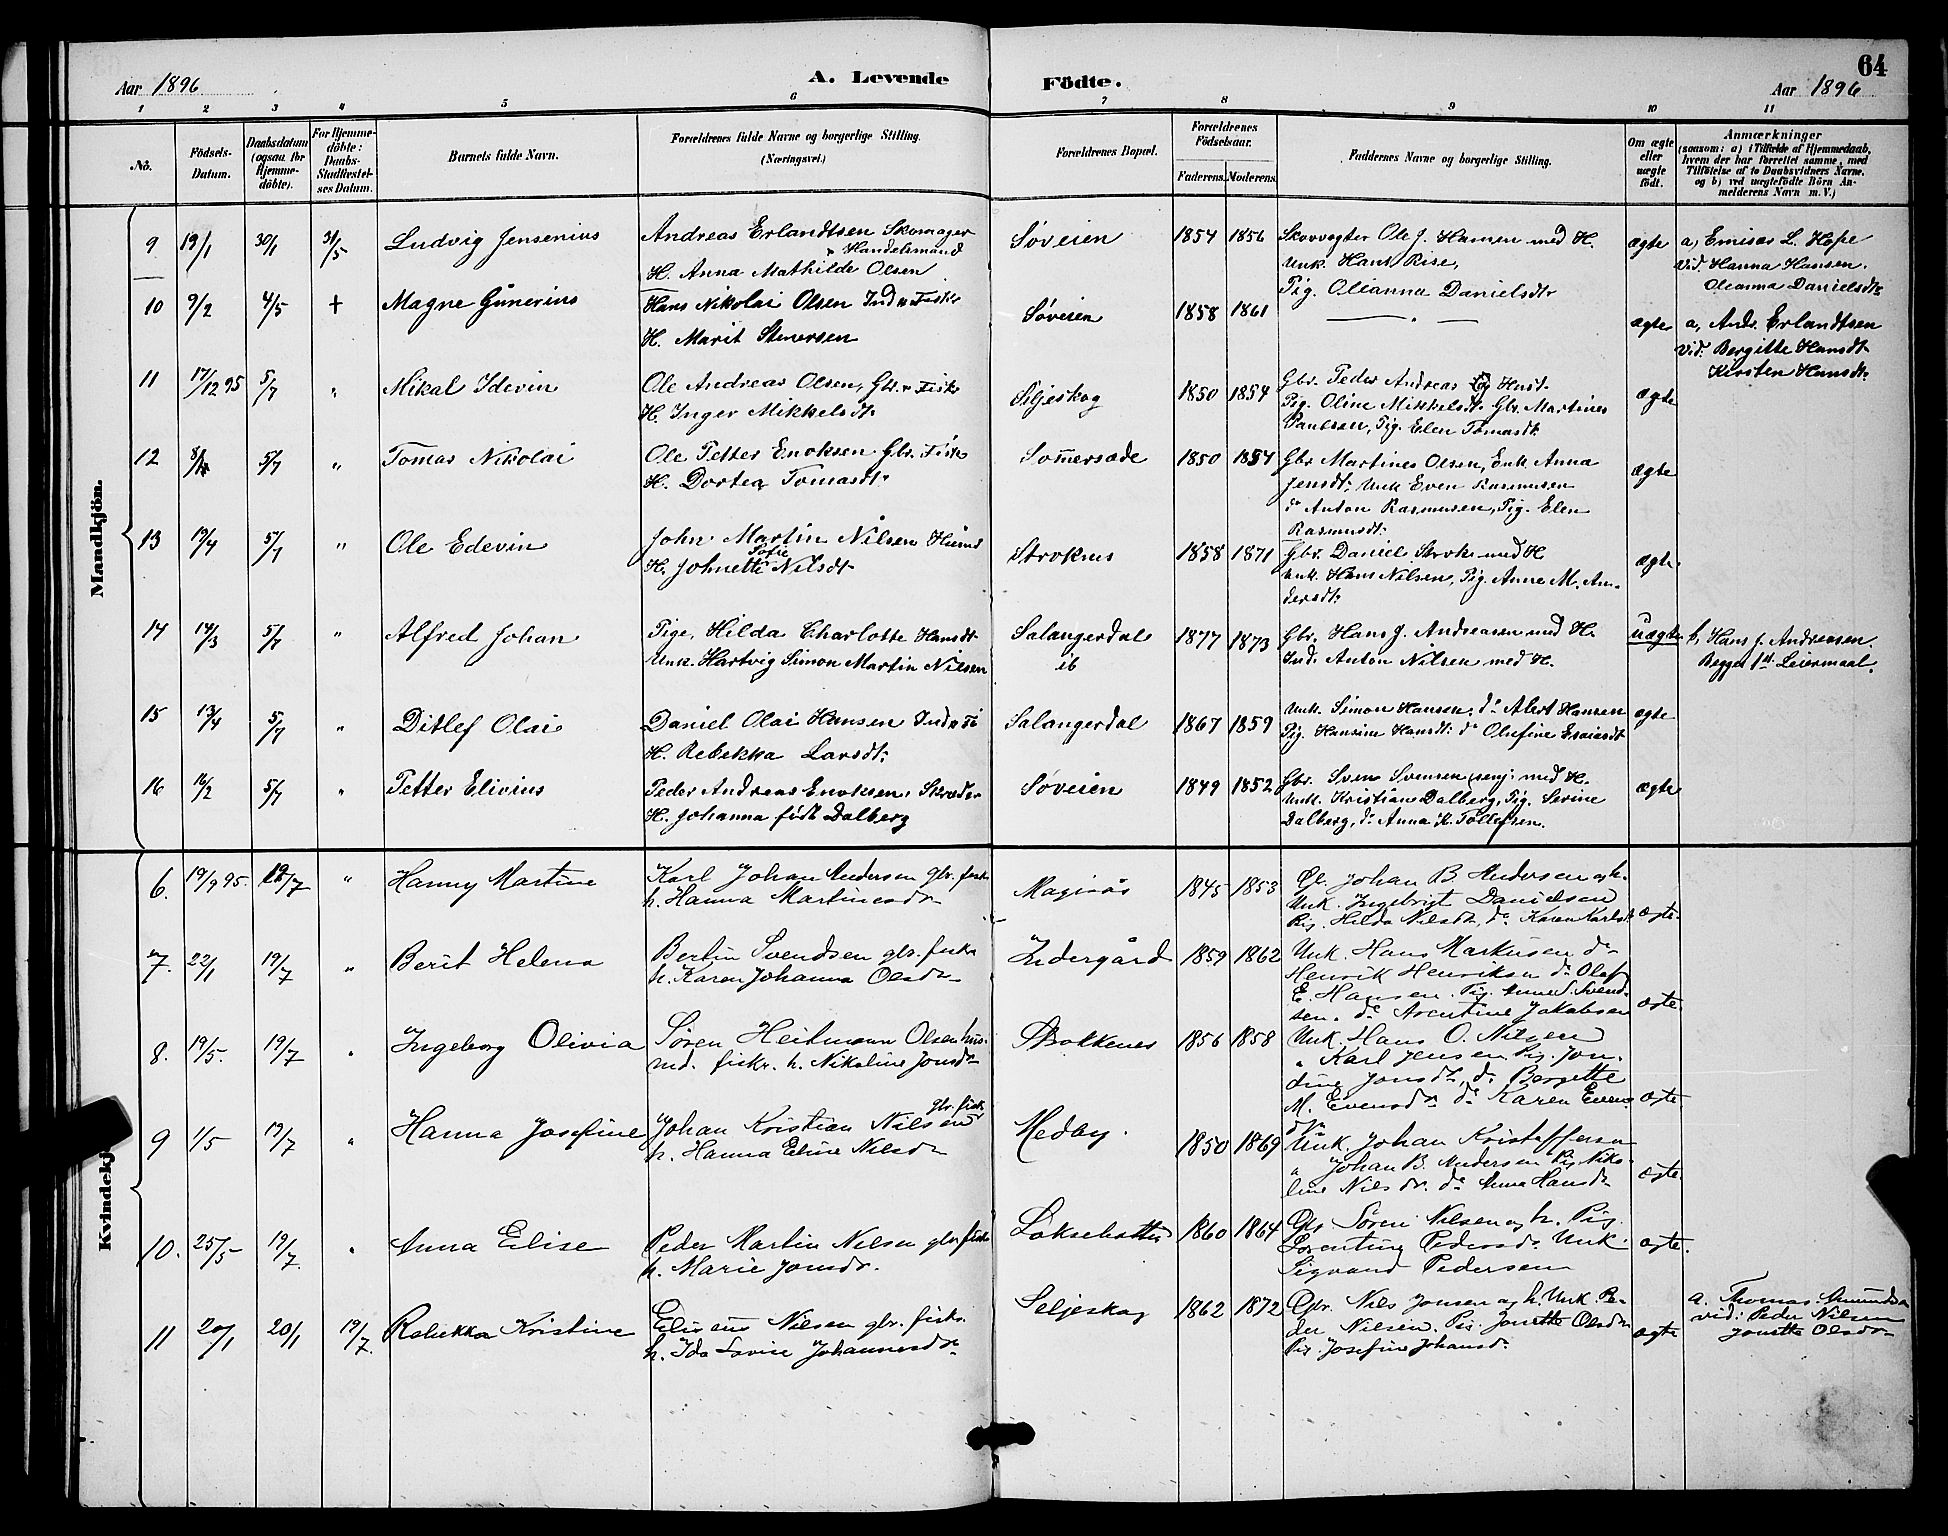 64
Aar 1896
A. Levende
Födte.
Aar 1896
1 2 3 4 5 6 7 8 9 10 11
No.
Födsels-
Datum.
Daabsdatum
(ogsaa for
Hjemme-
döbte).
For Hjemme-
döbte:
Daabs-
Stadfestel-
ses Datum.
Barnets fulde Navn.
Forældrenes fulde Navne og borgerlige Stilling.
(Næringsvei.)
Forældrenes Bopæl.
Forældrenes
Födselsaar.
Faderens. Moderens.
Faddernes Navne og borgerlige Stilling.
Om ægte
eller
uægte
födt.
Anmærkninger
(saasom: a) i Tilfælde af Hjemmedaab,
hvem der har forrettet samme, med
Tilföielse af to Daabsvidners Navne,
og b) ved uægtefödte Börn An-
melderens Navn m. V.)
Mandkjön.
9 19/1 30/1 31/5 Ludvig Jensenius
Andreas Erlandtsen Skomager
& Handelsmand
H. Anna Mathilde Olsen
Søveien 1854 1856
Skovvogter Ole J. Hansen med H.
Unk. Hans Rise,
Pig. Oleanna Danielsdtr
ægte
a, Emisær L. Hope
Vid. Hanna Hansen.
Oleanna Danielsdtr
10 9/2 4/5 + Magne Gunerius
Hans Nikolai Olsen Ind & Fisker
H. Marit Stenersen
Søveien 1858 1861
— " —
ægte
a, Andr. Erlandtsen
Vid. Bergitte Hansdtr
Kirsten Hansdtr
11 17/12 95 5/7 " Mikal Idevin
Ole Andreas Olsen, Gbr. & Fisker
H. Inger Mikkelsdtr
Siljeskog 1850 1854
Gbr. Peder Andreas og Hust.
Pig. Oline Mikkelsdtr Gbr. Martines
Paulsen, Pig. Elen Tomasdtr
ægte
12 5/7 " Tomas Nikolai
Ole Petter Enoksen Gbr. Fisker
H. Dortea Tomasdtr
Sommersæde 1850 1854
Gbr Martines Olsen, Enk Anna
Jensdtr, Unk Even Rasmusen
do Anton Rasmusen, Pig. Elen
Rasmusdtr
ægte
13 19/4 5/7 " Ole Edevin
John Martin Nilsen Husmd
Sofie
H. Johnette Nilsdtr
Stroknes 1858 1871
Gbr. Daniel Strokn med H
Unk. Hans Nilsen, Pig. Anne M. An-
dersdtr
ægte
14 14/3 5/7 " Alfred Johan
Pige, Hilda Charlotte Hansdtr
Unk. Hartvig Simon Martin Nilsen
Salangerdal
ib
1877 1873
Gbr. Hans J. Andreasen med H.
Ind. Anton Nilsen med H.
uægte
b, Hans J. Andreasen.
Begges 1st Leiermaal.
15 13/4 5/7 " Ditlef Olai
Daniel Olai Hansen Ind & Fi
H. Rebekka Larsdtr
Salangerdal 1867 1859
Unk. Simon Hansen, do Albert Hansen
Pig. Hansine Hansdtr do Olufine Esaiasdt
ægte
16 16/2 5/7 " Petter Elivius
Peder Andreas Enoksen, Skræder
H. Johanna født Dalberg
Søveien 1849 1852
Gbr. Sven Svensen senj. med H.
Unk. Kristian Dalberg, Pig. Serine
Dalberg, do Anna K. Tollefsen.
ægte
Kvindekj
6. 19/9 95. 19/7 " Hanny Martine
Karl Johan Andersen gbr. fisker
h. Hanna Martinesdr
Maginås 1845 1853
Gbr. Johan B. Andersen og h.
Unk. Ingebrigt Danielsen
Pig. Hilda Nilsdtr, do Karen Karlsdtr
ægte.
7. 22/1 19/7 " Berit Helena
Bertin Svendsen gbr. fisker
h. Karen Johanna Olsdr
Indergård 1859 1862
Unk. Hans Markusen do
Henrik Henriksen do Olaf
E. Hansen. Pig. Anne S. Svend-
sen. do Arentine Jakobsen
ægte.
8. 19/5. 19/7 " Ingeborg Olivia
Sören Heitmann Olsen hus-
md. fisker. h. Nikoline Jonsdr
Strokkenes 1856 1858
Unk. Hans O. Nilsen
" Karl Jensen Pig. Jon-
dine Jonsdtr, do Bergitte
M. Evensdr do Karen Evens-
dtr
ægte
9 1/5 19/7 " Hanna Josefine
gbr. fisk.
Johan Kristian Nilsen
h. Hanna Eline Nilsdr
Medby. 1850 1869
Unk. Johan Kristoffersen
" Johan B. Andersen Pig Niko-
line Nilsdr. do Anna Hansdr
ægte.
10. 25/5 19/7. " Anna Elise
Peder Martin Nilsen gbr. fisker
h. Marie Jonsdr.
Løksebotten 1860 1864
Gbr. Sören Nilsen og h. Pig.
Lorentine Pedersdr. Unk.
Sigvand Pedersen
ægte.
11 20/1 20/1 19/7. Rebekka Kristine
Eliseus Nilsen gbr. fisker.
h. Ida Lovise Johannesdr
Seljeskog 1862 1872
Gbr. Nils Jonsen og h. Unk. Pe-
der Nilsen. Pig. Jonette Olsdr
Pig. Josefine Johansdr
ægte
a. Thomas Amundsen
vid: Peder Nilsen
Jonette Olsdr